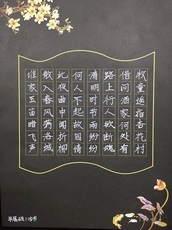 谁家玉笛暗飞声
散入春风满洛城
此夜曲中闻折柳
何人不起故园情
清明时节雨纷纷
路上行人欲断魂
借问酒家何处有
牧童遥指杏花村